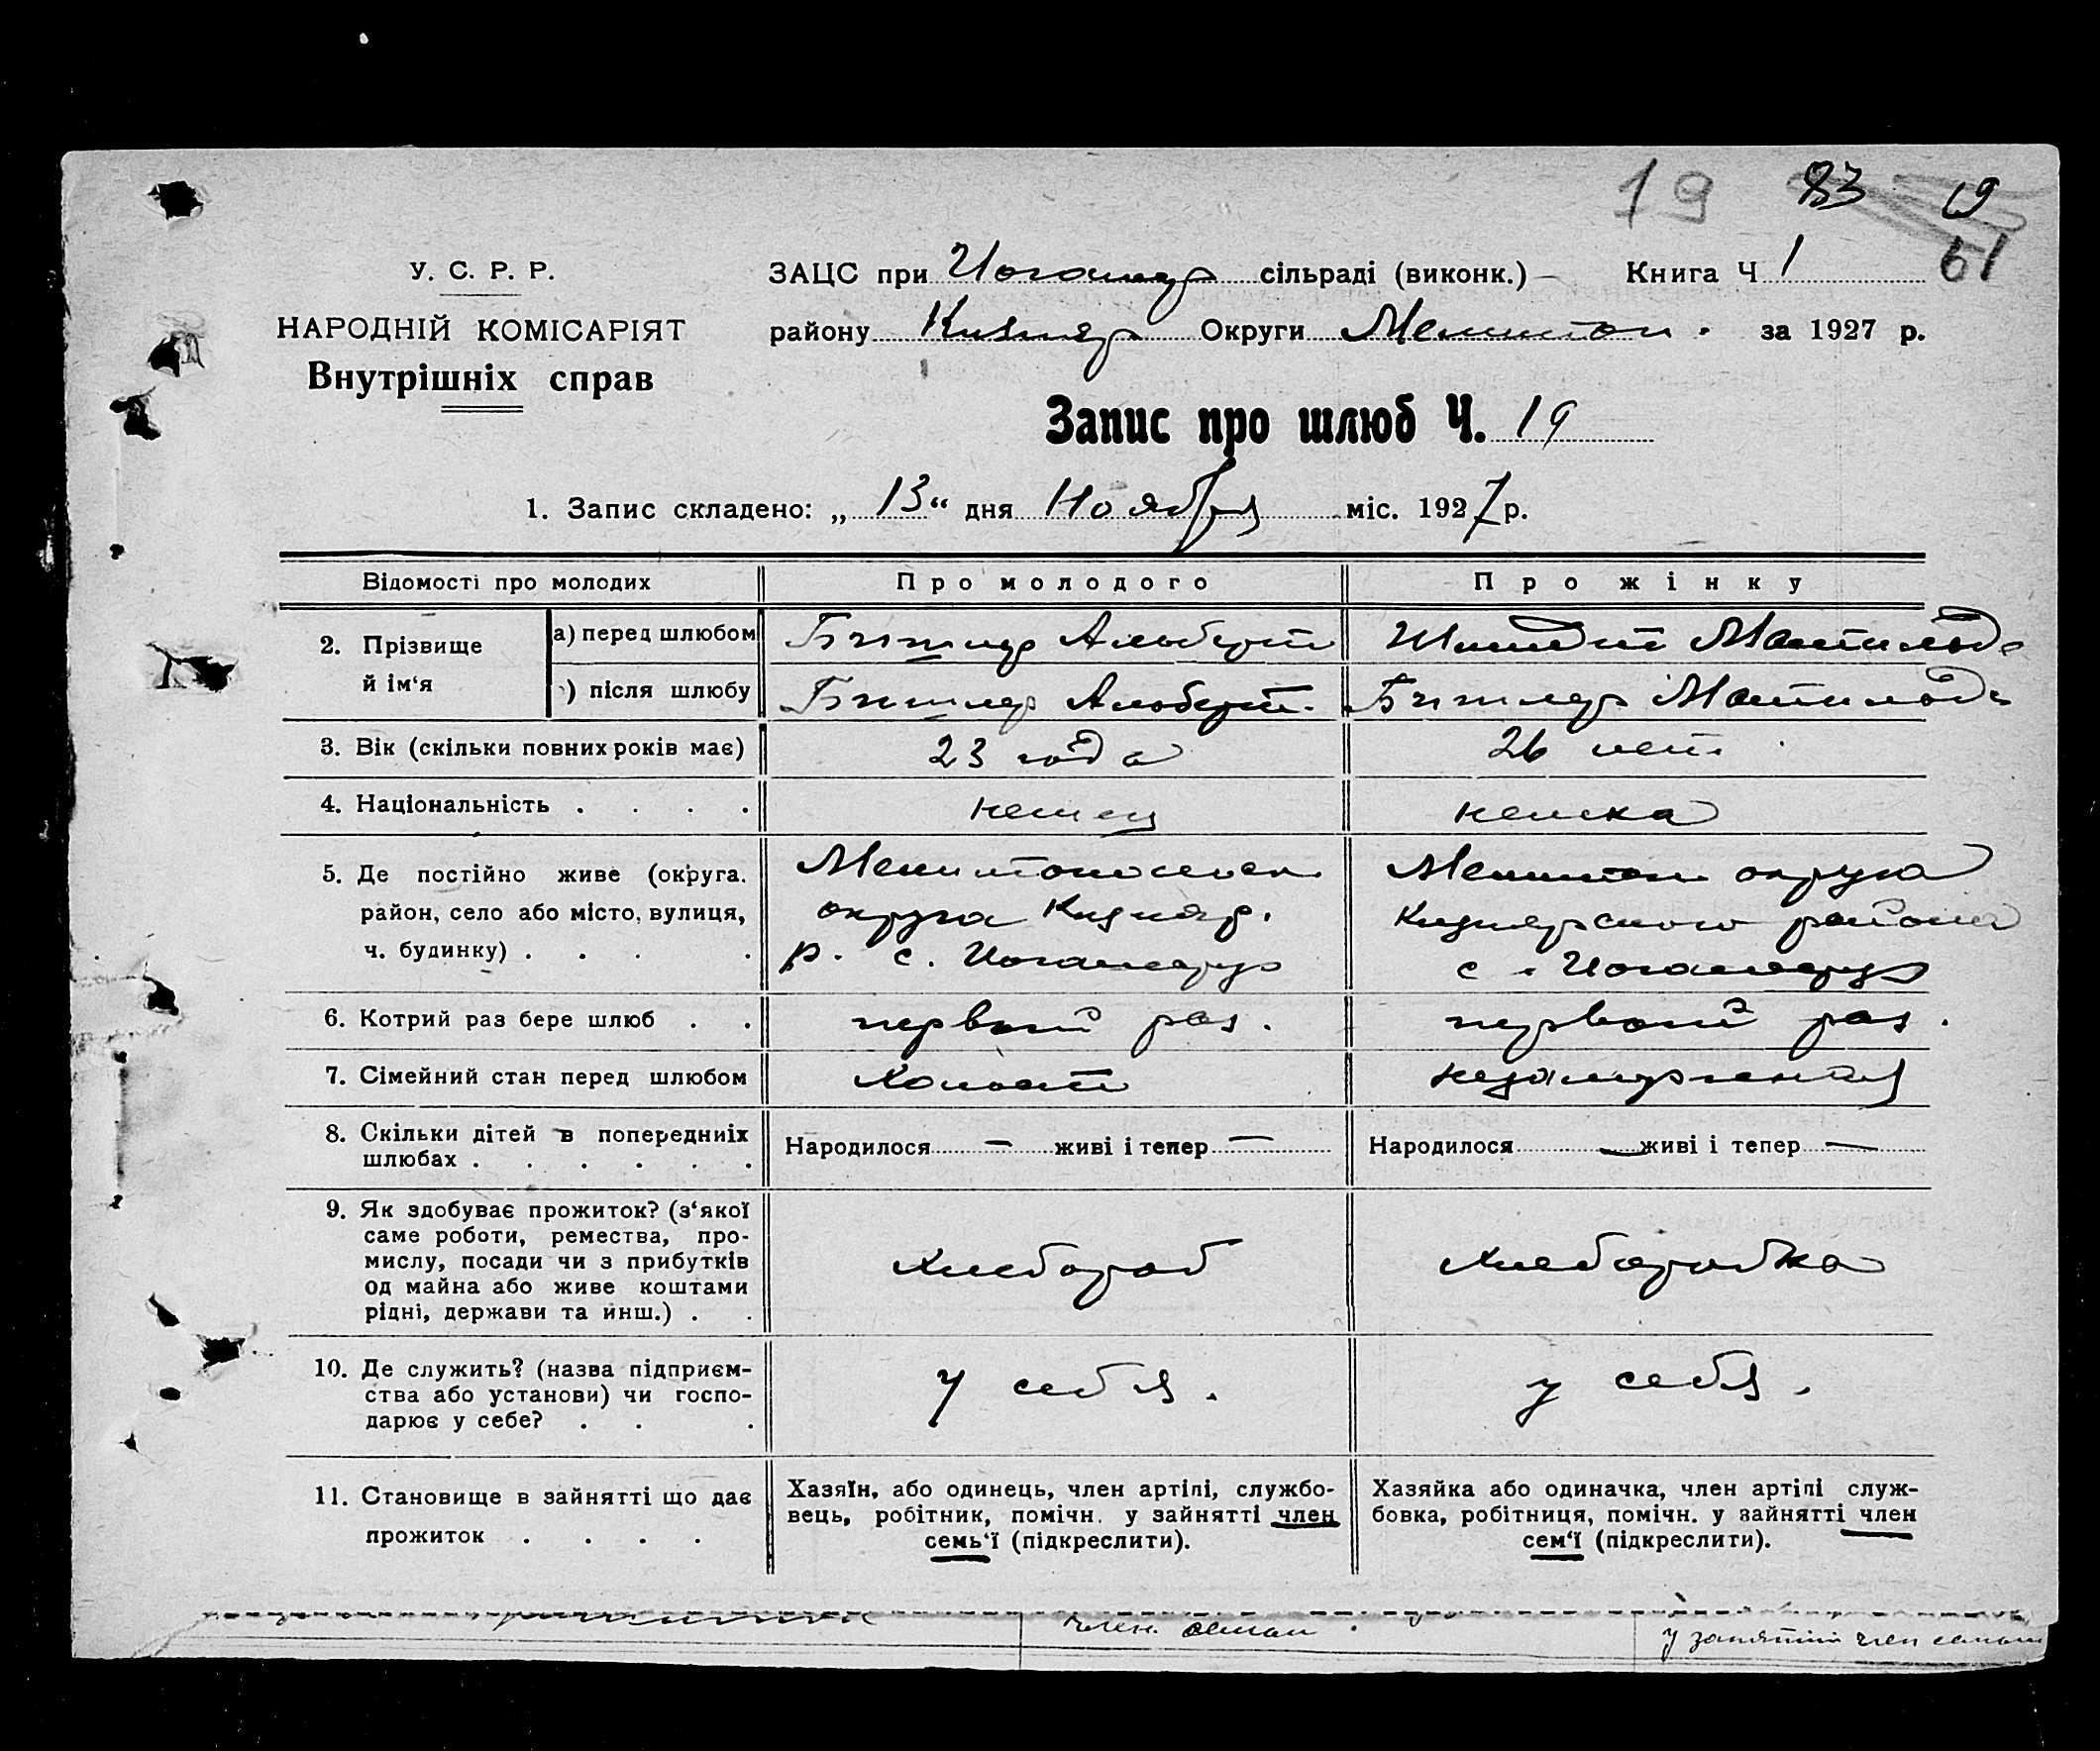 19 83 19
61
У. С. Р. Р.
НАРОДНІЙ КОМІСАРІЯТ
Внутрішніх справ
ЗАЦС при сільраді (виконк.) Книга Ч 1
району Кизияр Округи Мелитоп. за 1927 р.
Запис про шлюб Ч. 19
1. Запис складено: „13“ дня Ноября міс. 1927 р.
Відомості про молодих Про молодого Про жінку
2. Прізвище й ім‘я
а) перед шлюбом Альберт Шмидт Матильда
) після шлюбу Альберт. Матильда
3. Вік (скільки повних років має) 23 года 26 лет
4. Національність . . . . немец немка
5. Де постійно живе (округа.
район, село або місто, вулиця,
ч. будинку) . . . .
округа Кизияр.
р. с.
Мелитоп округа
Кизиярского района
с.
6. Котрий раз бере шлюб . . первый раз. первый раз.
7. Сімейний стан перед шлюбом Холост незамужняя
8. Скільки дітей в попередниіх
шлюбах . . . . . .
Народилося — живі і тепер — Народилося — живі і тепер —
9. Як здобуває прожиток? (з‘якої
саме роботи, ремества, про-
мислу, посади чи з прибутків
од майна або живе коштами
рідні, держави та инш.) . .
хлебороб хлеборобка
10. Де служить? (назва підприєм-
ства або установи) чи госпо-
дарює у себе? . . .
у себя. у себя.
11. Становище в зайнятті що дає
прожиток . . . .
Хазяїн, або одинець, член артілі, службо-
вець, робітник, помічн. у зайнятті член
семь‘ї (підкреслити).
Хазяйка або одиначка, член артілі служ-
бовка, робітниця, помічн. у зайнятті член
сем‘ї (підкреслити).
член семьи у занятии член семьи